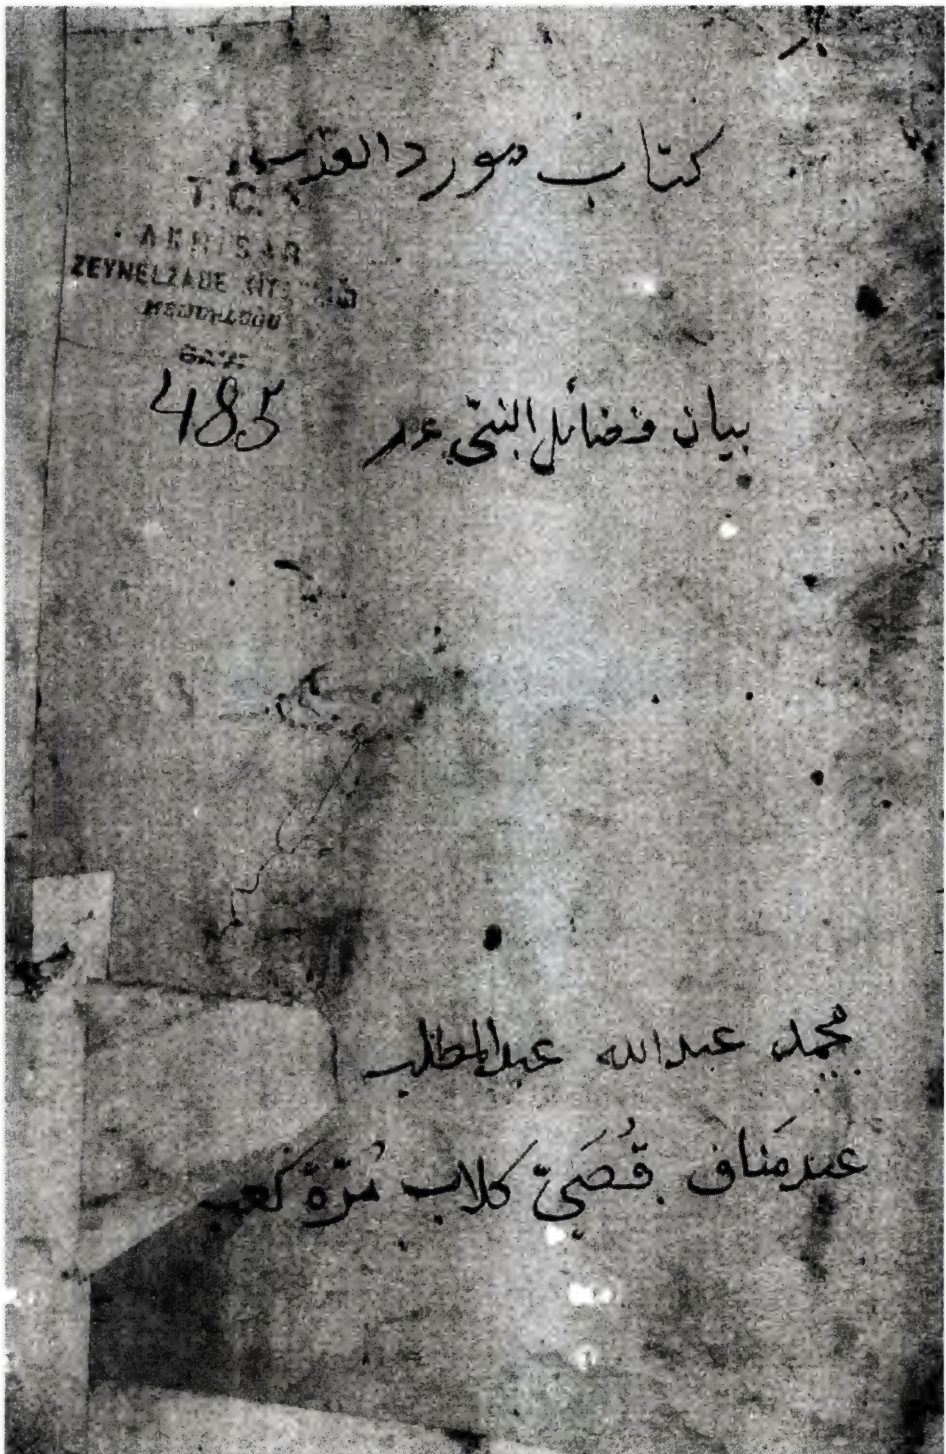 كتاب مورد العذب
T.C.
AKHİSAR
ZEYNELZADE
485
بيان فضائل النبي عم
محمد عبدالله عبدالمطلب
عبد مَناف قُصَيّ كلاب مُرّة كعب